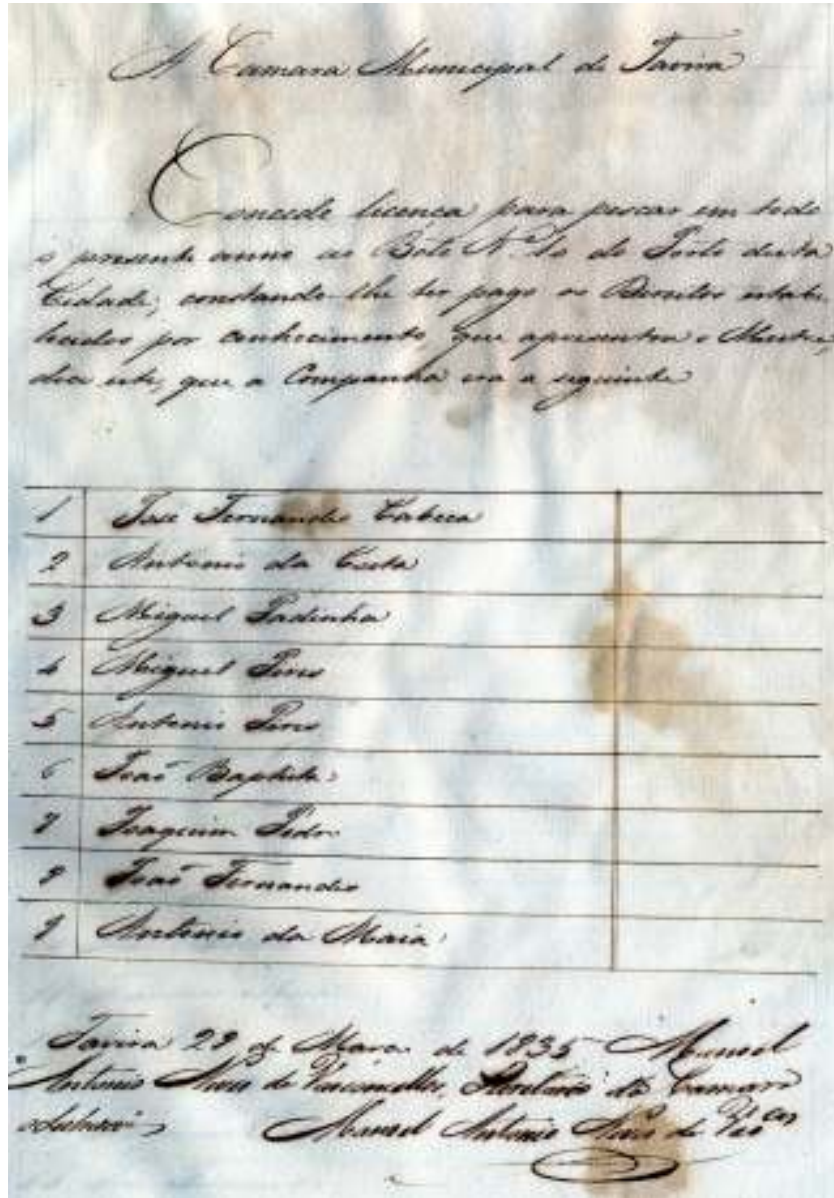 A Camara Municipal de Tavira
Concede licença para pescar em todo
o presente anno ao Bote N.º 10 do Porto desta
Cidade; constando-lhe ter pago os Direitos estabe
lecidos por conhecimento, que apresentou o Mestre,
que a Companha era a seguinte
1 José Fernandes Cabeca
2 Antonio da Costa
3 Miguel Padinha
4 Miguel Pires
5 Antonio Pires
6 Joaõ Baptista
7 Joaquim Pedro
8 Joaõ Fernandes
9 Antonio da Maia
Tavira 29 de Março de 1835 Manoel
Antonio Neves de Vasconcellos, Secretario da Camara
Manoel Antonio Neves de Vas.cos